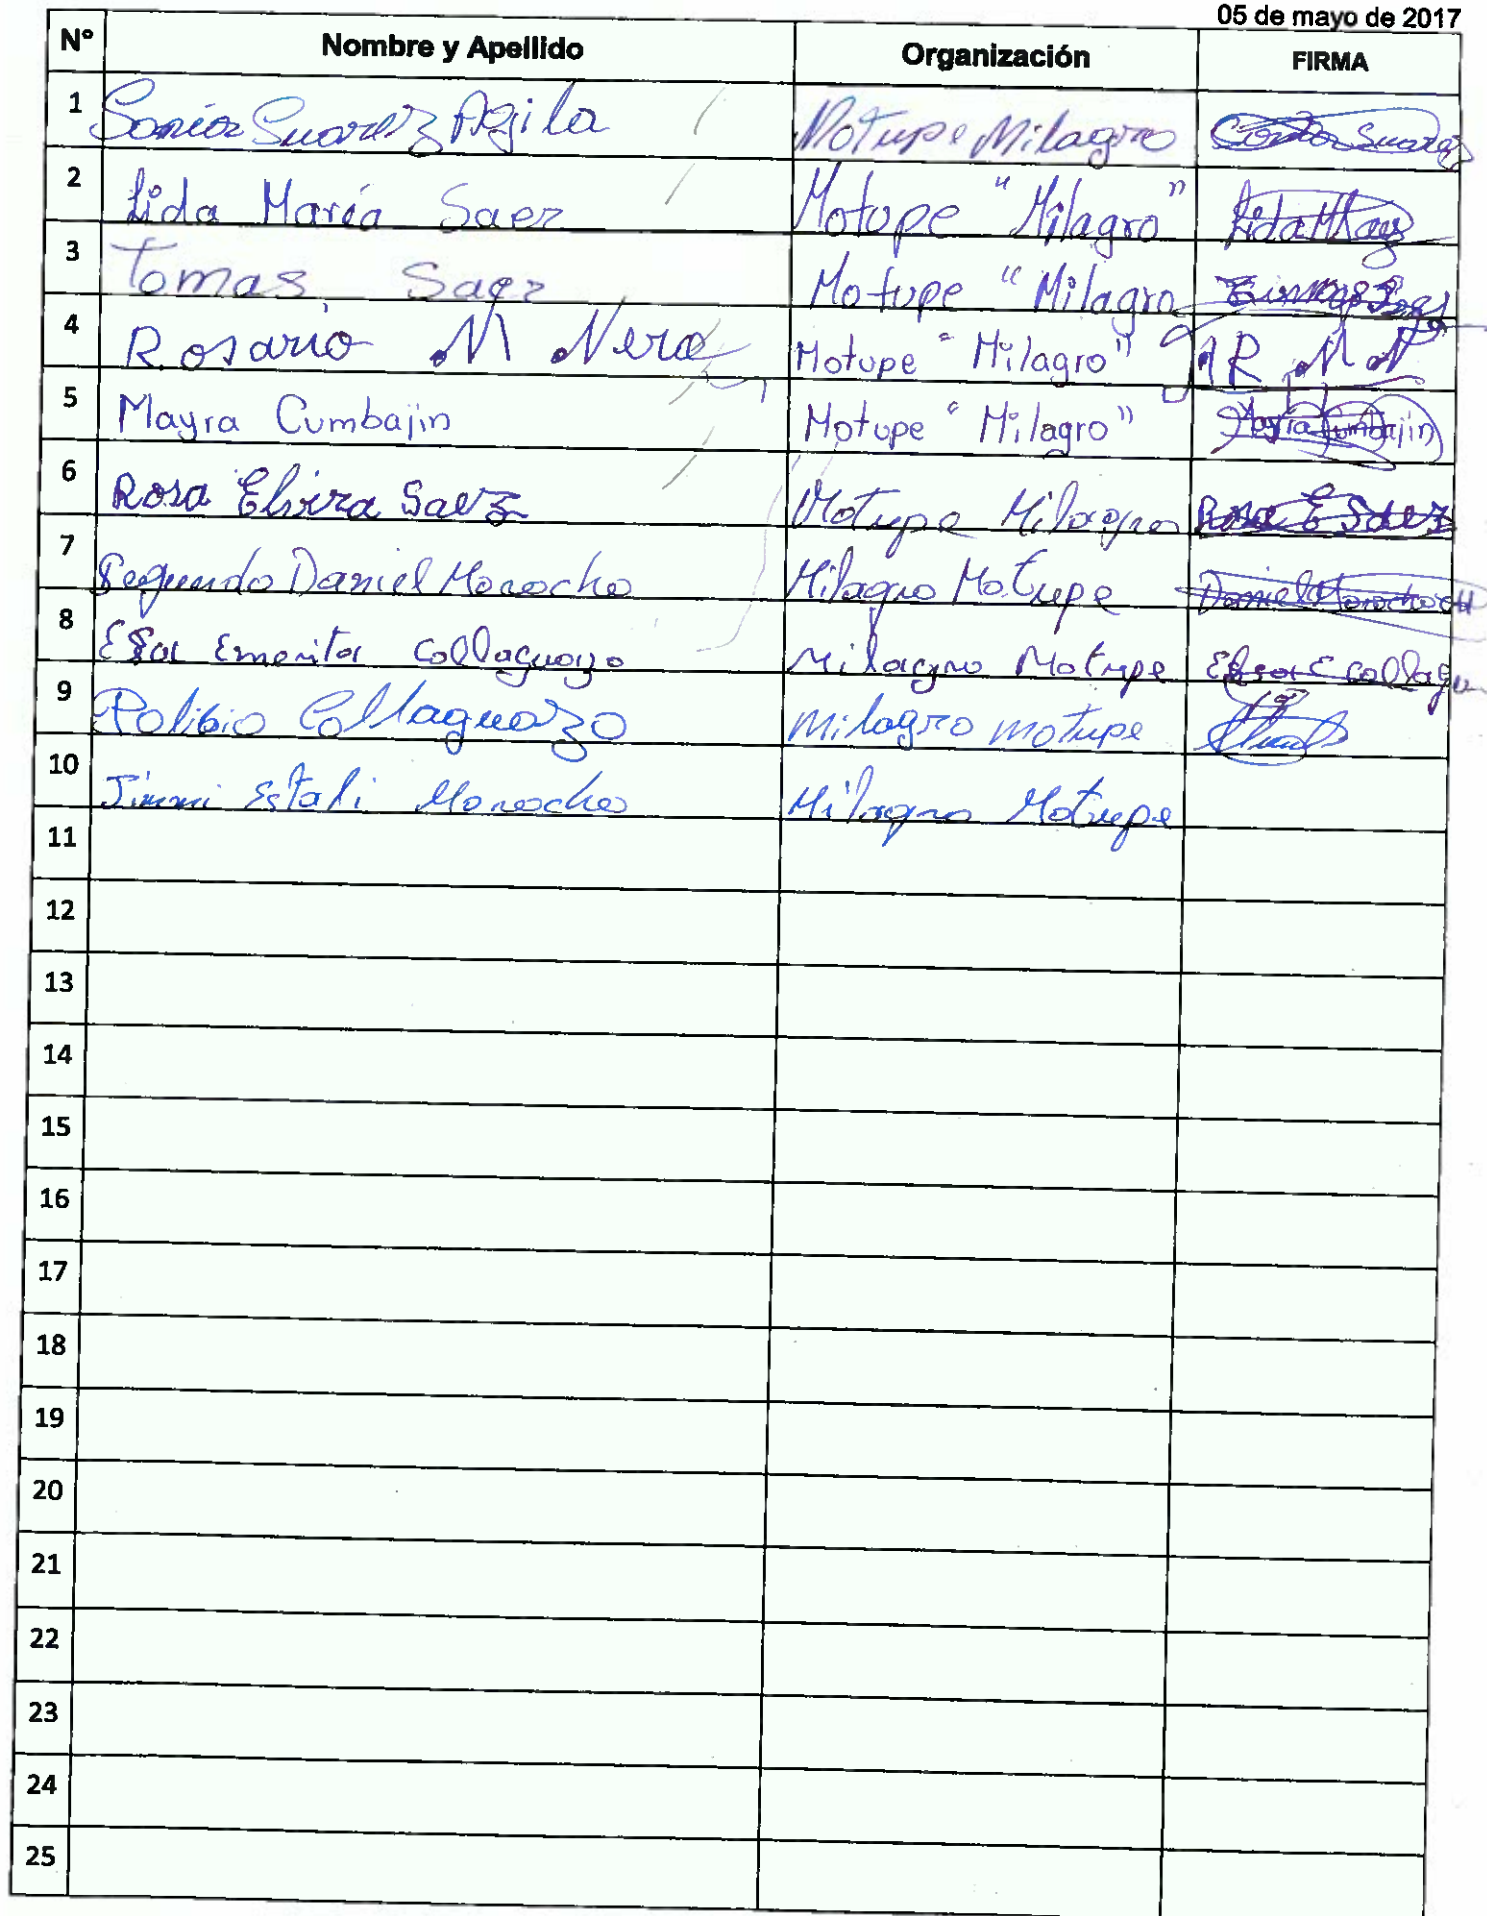 05 de mayo de 2017
N° Nombre y Apellido Organización FIRMA
1 Sonia Suarez Agila Motupe Milagro Suarez
2 Lida María Saez Motupe "Milagro"
3 Tomas Saez Motupe "Milagro
4 Rosario M Nera Motupe "Milagro" R M N
5 Mayra Cumbajin Motupe "Milagro" Mayra Cumbajin
6 Rosa Elvira Saez Motupe Milagro Rosa E Saez
7 Segundo Daniel Morocho Milagro Motupe Daniel Morocho
8 Emerita Collaguazo Milagro Motupe
9 Polibio Collaguazo Milagro motupe
10 Jimmi Estali Morocho Milagro Motupe
11
12
13
14
15
16
17
18
19
20
21
22
23
24
25